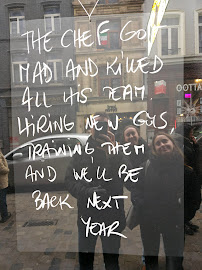 THE CHEF GOT
MAD AND KILLED
ALL HIS TEAM.
HIRING NEW GUYS,
TRAINING THEM
AND WE'LL BE
BACK NEXT
YEAR